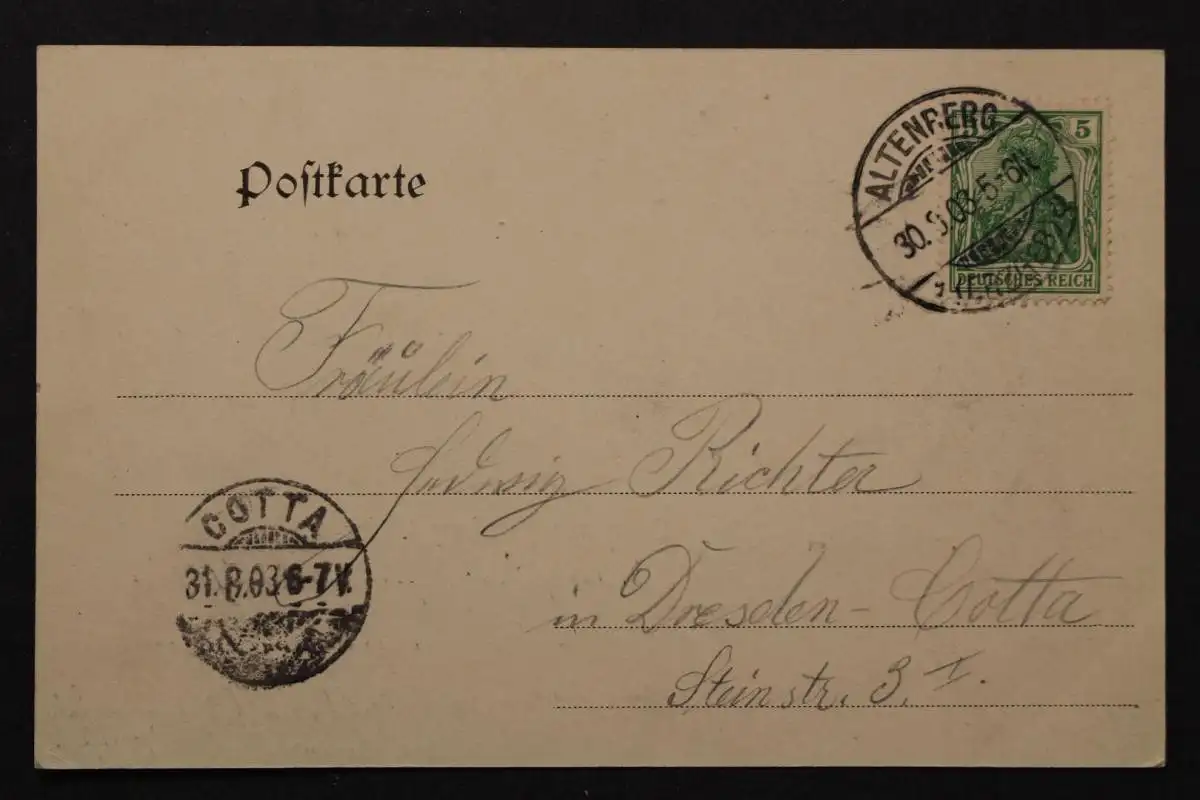 Postkarte
ALTENBERG
5
30. 8. 03. 5-6N.
DEUTSCHES REICH
Fräulein
Hedwig Richter
COTTA
31. 8. 03 6-7V.
in Dresden-Cotta
Steinstr. 3. I.